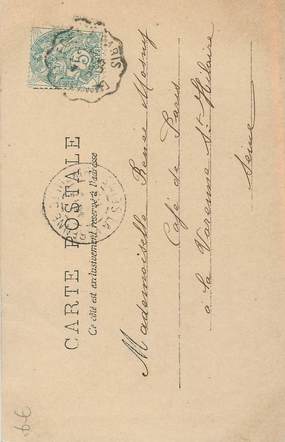 CARTE POSTALE
Ce côté est exclusivement réservé à l'adresse
Mademoiselle Renée Mosny
Café de Paris
à la Varenne St Hilaire
Seine
5